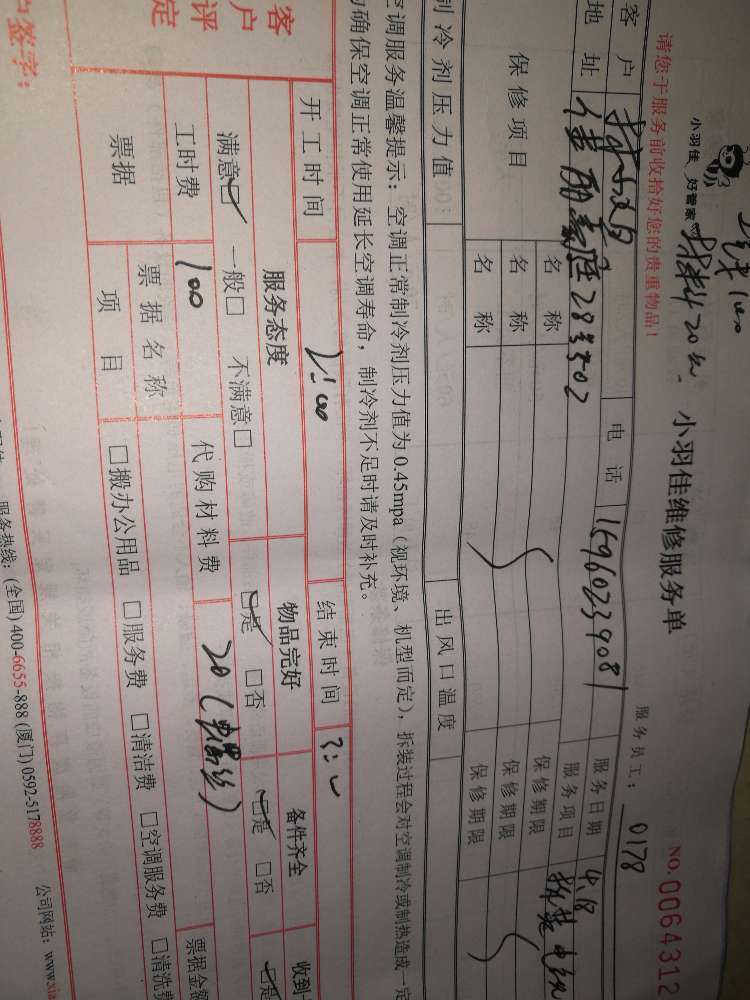 小羽佳 好管家
材料20元
小羽佳维修服务单
NO.0064312
请您于服务前收拾好您的贵重物品!
服务员工: 0178
客户
电话 15960239081
服务日期 4.18
地址 佳丽豪庭
服务项目
保修项目
名称
保修期限
名称
保修期限
名称
保修期限
制冷剂压力值:
出风口温度
空调服务温馨提示:空调正常制冷剂压力值为0.45mpa(视环境、机型而定),拆装过程会对空调制冷或制热造成一定
确保空调正常使用延长空调寿命,制冷剂不足时请及时补充。
开工时间 2:00 结束时间
客户评定
服务态度 物品完好 备件齐全 收到
满意☑ 一般□ 不满意□ ☑是 □否 ☑是 □否 ☑是
工时费 100 代购材料费 20
票据金额
票据 票据名称
项目 □搬办公用品 □服务费 □清洁费 □空调服务费 □清洗费
服务热线:(全国)400-6655-888 (厦门)0592-5178888 公司网站:www.xia
户签字: